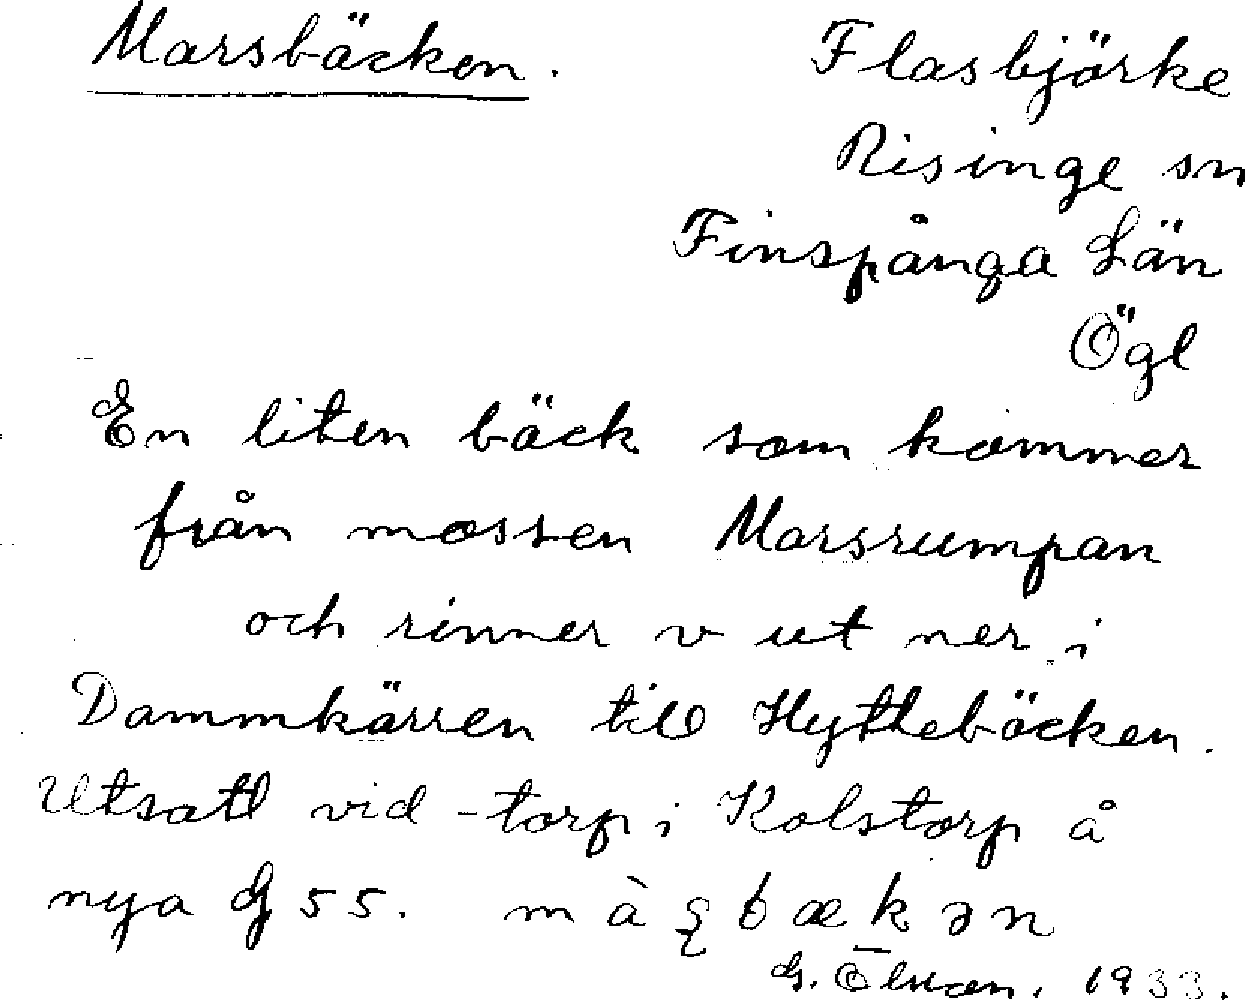 Marsbäcken.
Flasbjörke
Risinge sn
Finspånga Län
Ögl
En liten bäck som kommer
från mossen Marsrumpan
och rinner v ut ner i
Dammkärren till Hyttebäcken.
Utsatt vid -torp i Kolstorp å
nya G 55. m à ʂ b æ k ə n
G. 1933.